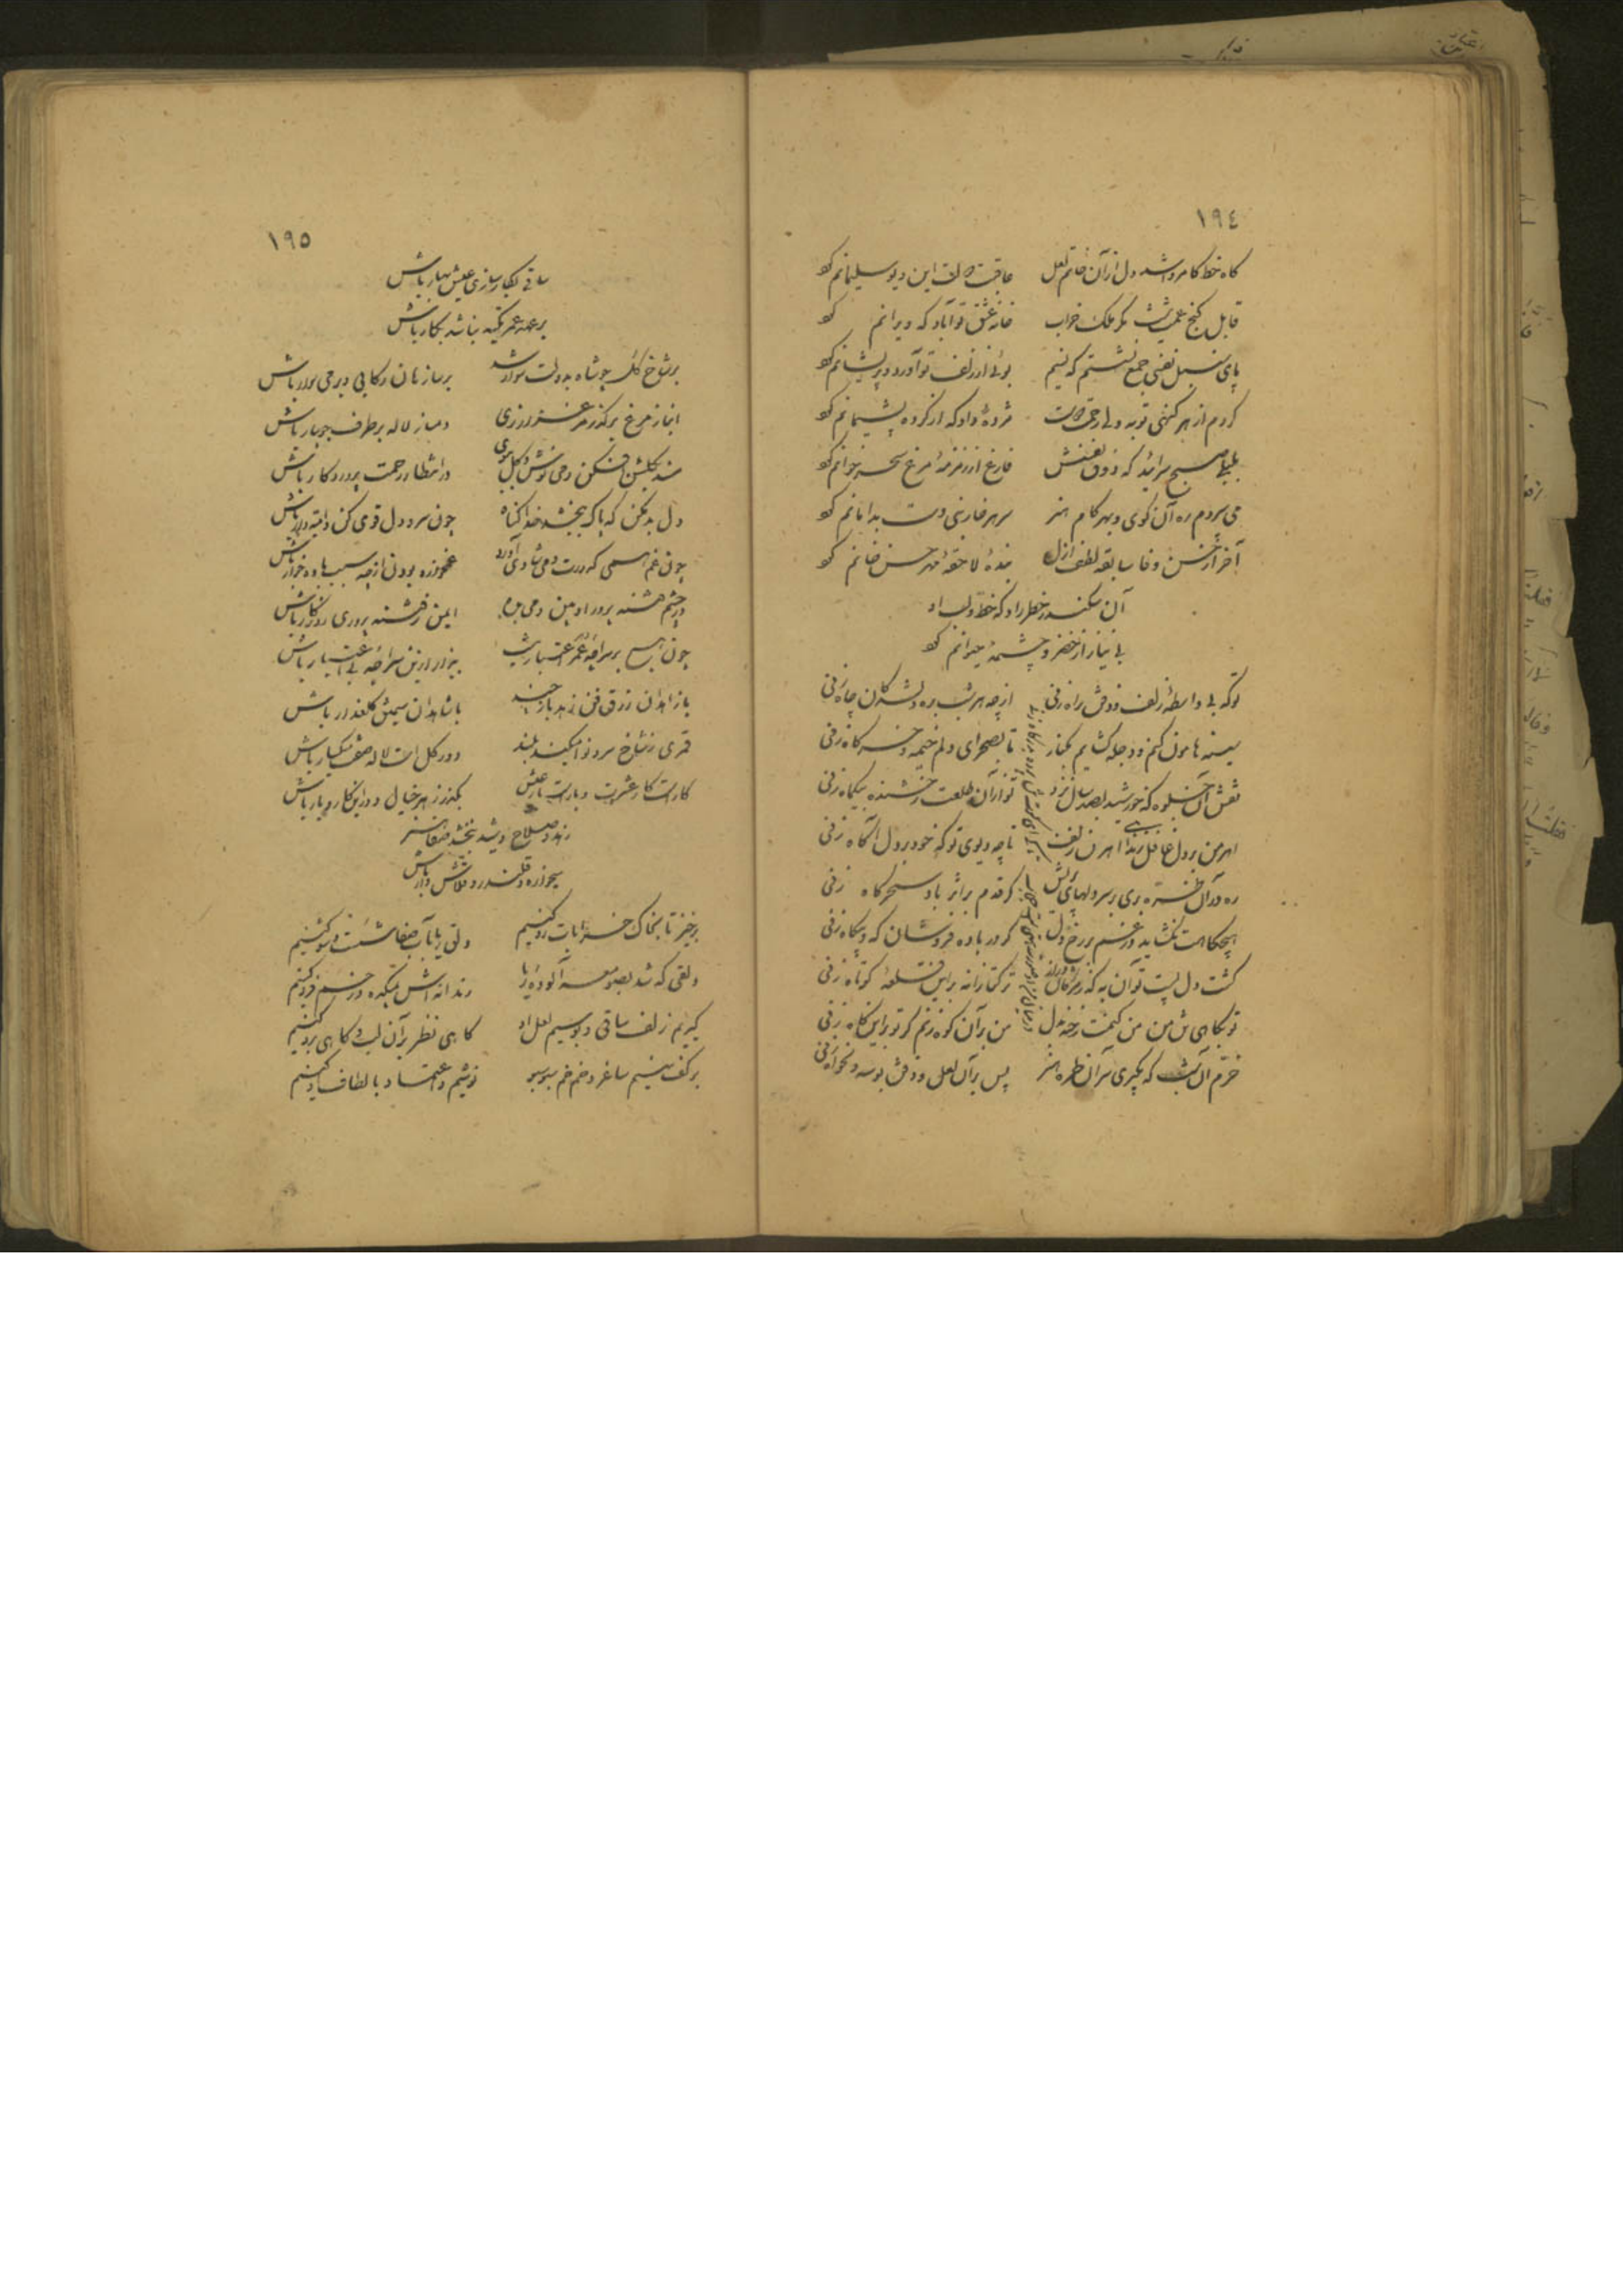 ١٩٤
کاه خط کامروا شد دل از آن خاتم لعل عاقبت دولت این دیو سلیمانم کرد
قابل کنج غمت نیست مکر ملک خراب خانه عشق تو آباد که ویرانم کرد
پای سنبل نفسی جمع نشستم که نسیم بوئی از زلف تو آورد و پریشانم کرد
کردم از هر کنهی توبه ولی رحمت دوست مژده داد که از کرده پشیمانم کرد
بلبل صبح سراید که ذوق نفسش فارغ از زمزمهٔ مرغ سحر خوانم کرد
می سپردم ره آن کوی و بهر کام هنر سر هر خار بنی دست بدامانم کرد
آخر از حسن وفا سابقه لطف ازل بندهٔ لاحقهٔ مهر حسن خانم کرد
آن سکندر خطر راد که خط و لب او
بی نیاز از خضر و چشمهٔ حیوانم کرد
توکه بی واسطه زلف و ذقن راه زنی از چه هر شب بره دلشدکان چاه زنی
سینه هامون کنم و دجله کشایم بکنار تا بصحرای دلم خیمه و خرکاه زنی
نقش آن جلوه که خورشید بصد سال نزد تو از آن طلعت رخشنده بیکماه زنی
اهرمن بر دل غافل زند ا اهرمن زلف تا چه دیوی تو که خود بر دل آکاه زنی
ره در آن طره بری بر سر دلهای پریش کر قدم بر اثر باد سحرکاه زنی
هیچکاهت نکشاید در غم بر رخ دل کر در باده فروشان که و بیکاه زنی
کشت دل پست تو آن به که ز مژکان دراز ترکتازانه براین قلعه کوتاه زنی
تو بکاهی ش من من کیمت رخنه بدل من بر آن کوه زنم کر تو براین کاه زنی
خرم آن شب که بکیری سر آن طره هنر پس بر آن لعل و ذقن بوسه دلخواه زنی
١٩٥
ساقی بکار سازی عیش بهار باش
بر عهد عمر تکیه نباشد بکار باش
بر شاخ کل چو شاه بدولت سوار شد بر ساز نان رکابی و بر می سوار باش
انباز مرغ بر کذر مرغزار زی دمساز لاله بر طرف جویبار باش
مسند بکلشن افکن و می نوش و کل ببوی در انتظار رحمت پروردکار باش
دل بد مکن که پاک ببخشد خدا کناه چون سرو دل قوی کن و امیدوار باش
چون غم همی کدورت و می شادی آورد غمخواره بودن از چه سبب باده خوار باش
در چشم فتنه پرور او بین و می بده ایمن ز فتنه پروری روزکار باش
چون هیچ بر سراچهٔ عمر اعتبار نیست بیزار ازین سراچه بی اعتبار باش
با زاهدان زرق فن زهد باز چند با شاهدان سیمتن کلعذار باش
قمری ز شاخ سرو نوا میکند بلند دور کل است لاله صفت میکسار باش
کارت کار عشرت و بارت بار عیش بکذر ز هر خیال و در این کار و بار باش
رند و صلاح پیشه نبخشد صفا هنر
میخواره و قلندر و قلاش وار باش
برخیز تا بخاک خرابات رو کنیم دلق ریا بآب صفا شست و شو کنیم
دلقی که شد بصومعه آلوده ریا رندانه اش بمیکده در خم فرو کنیم
کیریم زلف ساقی و بوسیم لعل او کاهی نظر بر آن لب و کاهی برو کنیم
بر کف نهیم ساغر و خم خم سبو سبو نوشیم و اعتماد بالطاف او کنیم